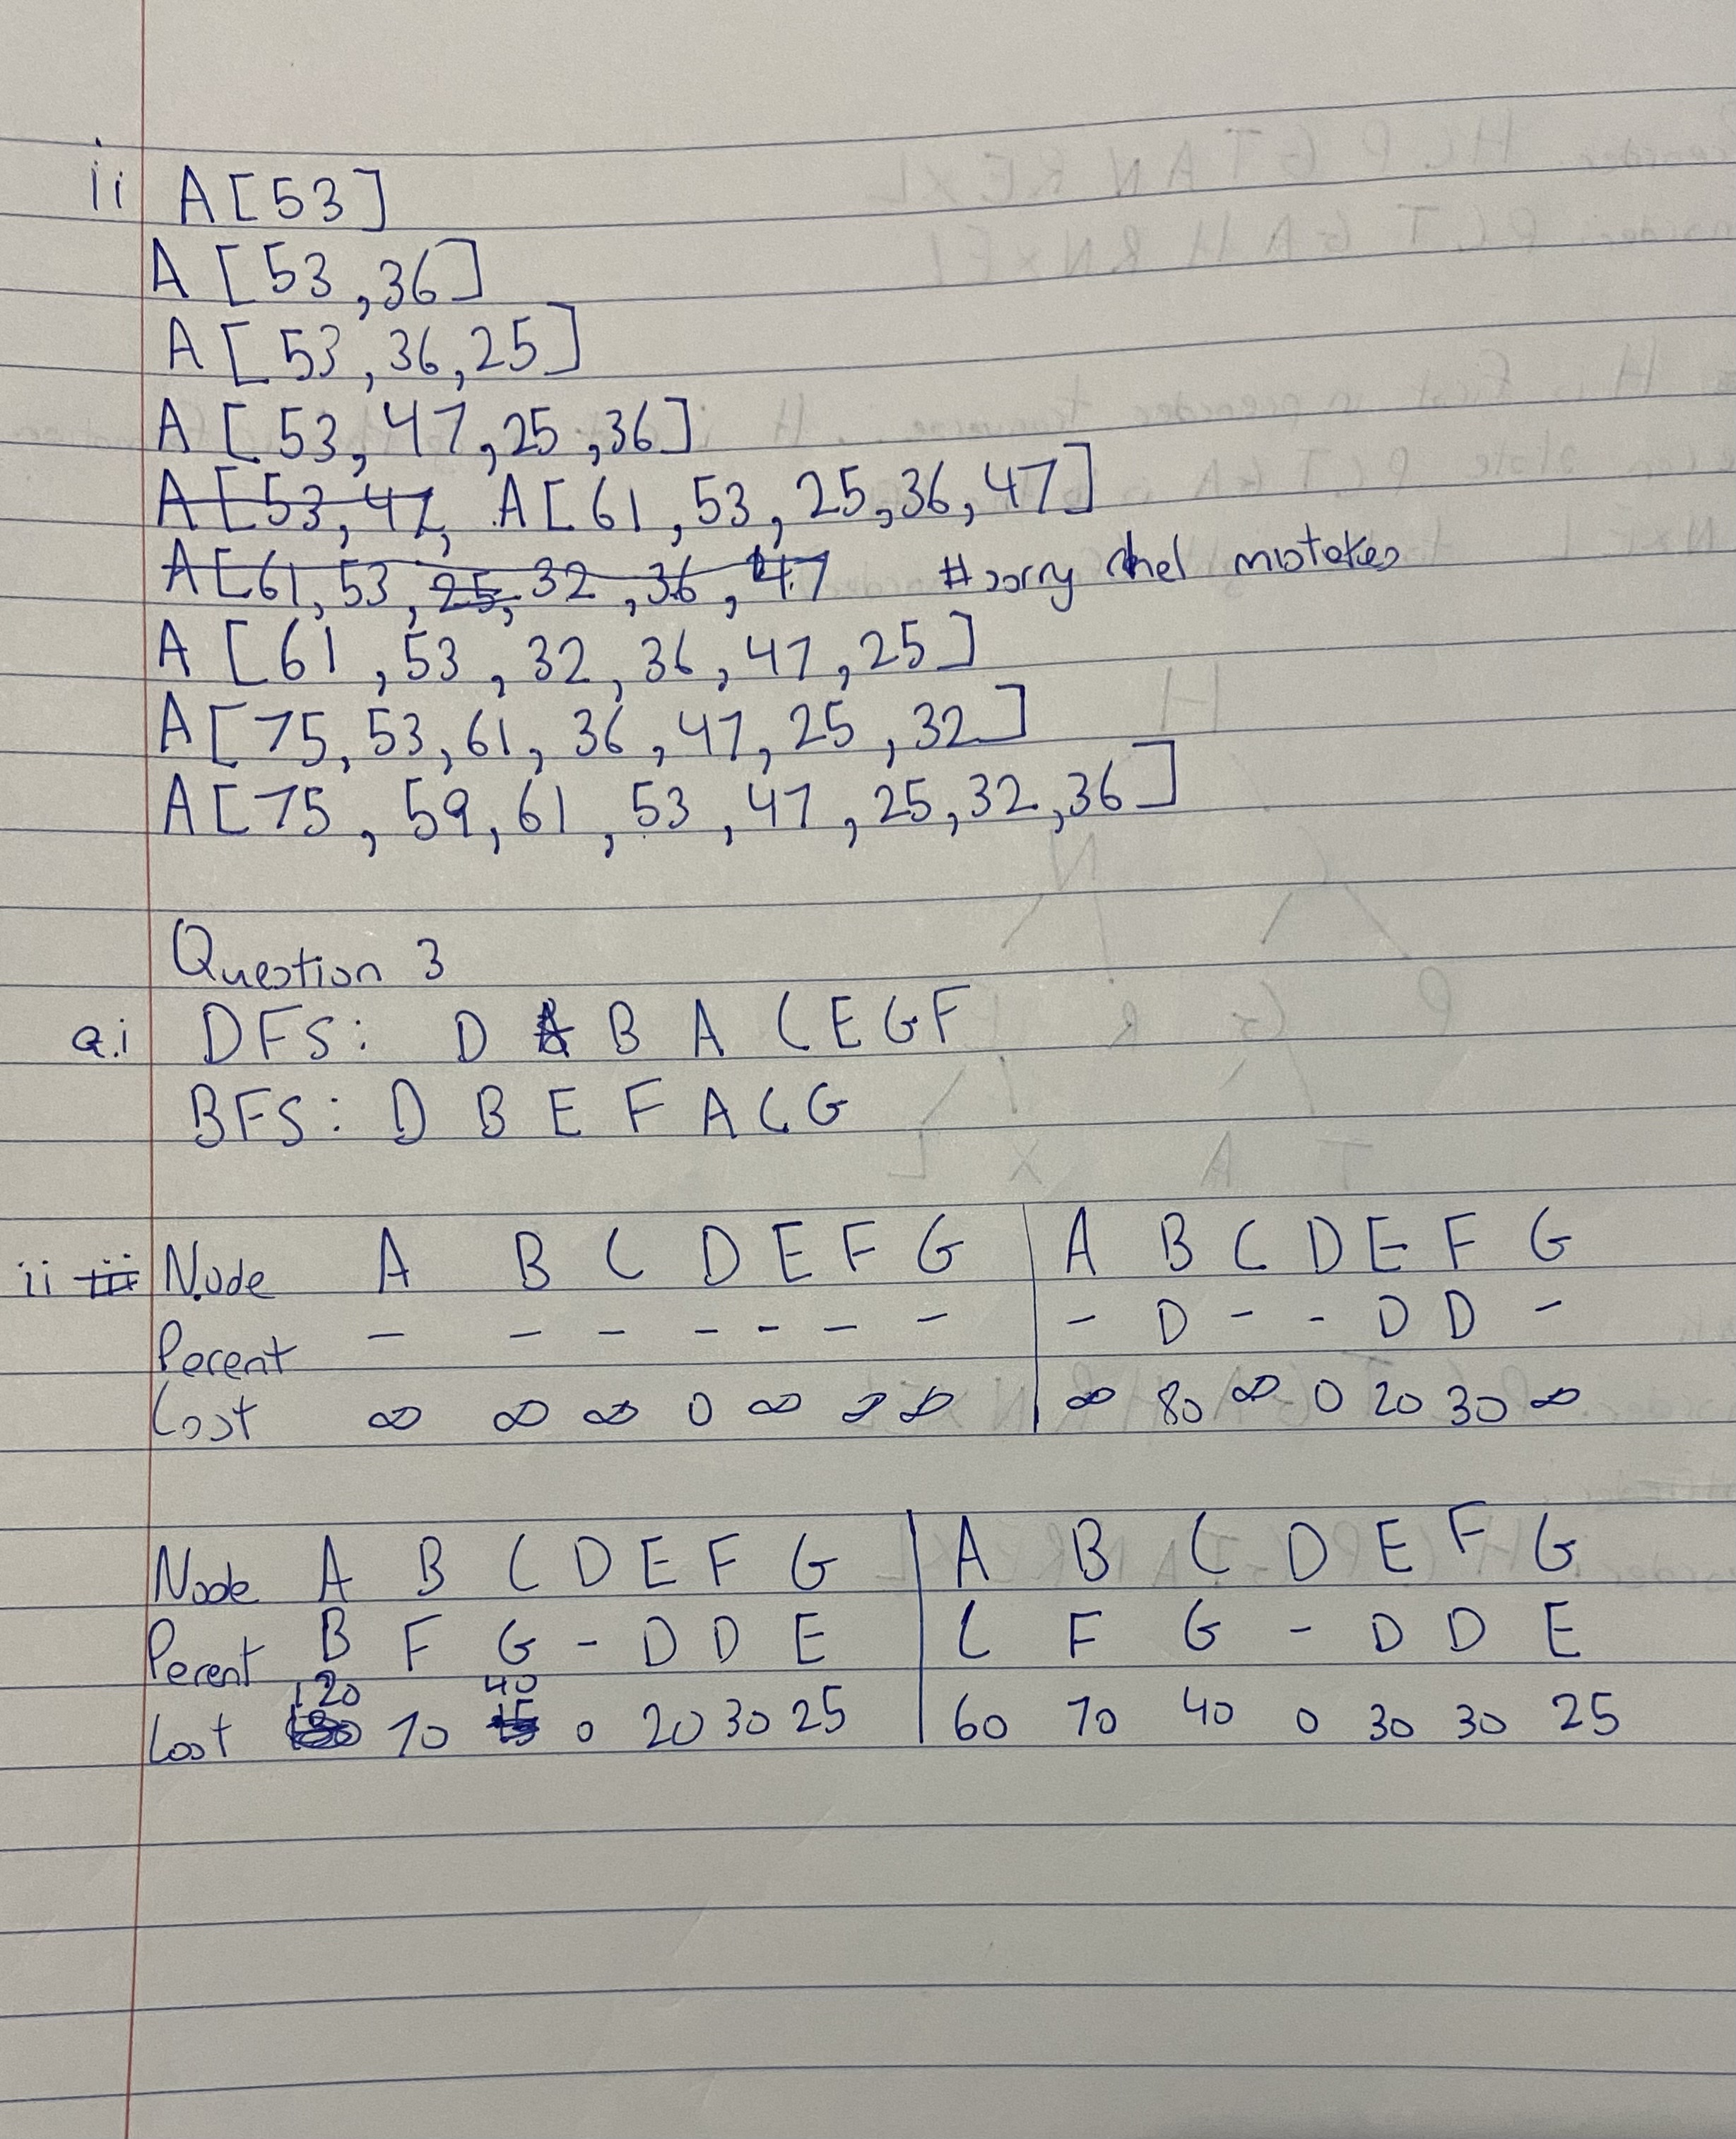 ii A[53]
A[53,36]
A[53,36,25]
A[53,47,25,36]
A[53,47, A[61,53,25,36,47]
A[61,53,25,32,36,47 #sorry had mistakes
A[61,53,32,36,47,25]
A[75,53,61,36,47,25,32]
A[75,59,61,53,47,25,32,36]
Question 3
a.i DFS: D B A C E G F
BFS: D B E F A C G
ii iii Node A B C D E F G | A B C D E F G
Perent - - - - - - - | - D - - D D -
Cost ∞ ∞ ∞ 0 ∞ ∞ ∞ | ∞ 80 ∞ 0 20 30 ∞
Node A B C D E F G | A B C D E F G
Perent B F G - D D E | C F G - D D E
120 40
Cost 70 0 20 30 25 | 60 70 40 0 30 30 25